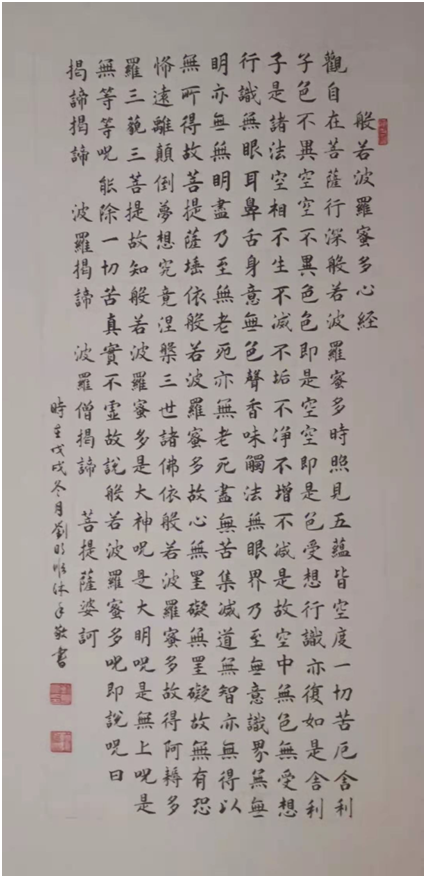 般若波羅蜜多心経
觀自在菩薩行深般若波羅蜜多時照見五蘊皆空度一切苦厄舍利
子色不異空空不異色色即是空空即是色受想行識亦復如是舍利
子是諸法空相不生不减不垢不净不增不减是故空中無色無受想
行識無眼耳鼻舌身意無色聲香味觸法無眼界乃至無意識界無無
明亦無無明盡乃至無老死亦無老死盡無苦集减道無智亦無得以
無所得故菩提薩埵依般若波羅蜜多故心無罣礙無罣礙故無有恐
怖遠離顛倒夢想究竟涅槃三世諸佛依般若波羅蜜多故得阿耨多
羅三藐三菩提故知般若波羅蜜多是大神呪是大明呪是無上呪是
無等等呪能除一切苦真實不虛故說般若波羅蜜多呪即說呪曰
揭諦揭諦 波羅揭諦 波羅僧揭諦 菩提薩婆訶
時在戊戌冬月劉明沐手敬書